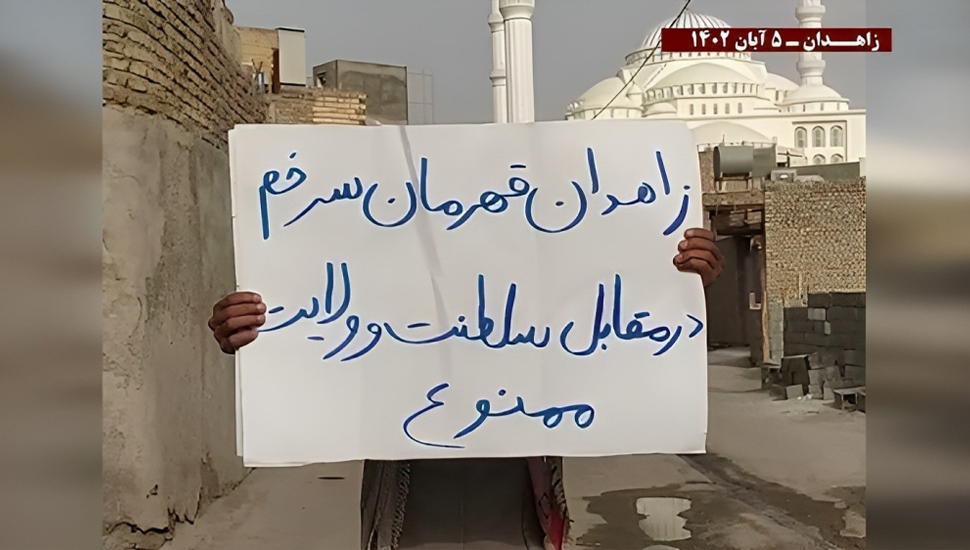 زاهــدان ــ ۵ آبان ۱۴۰۲
زاهدان قهرمان سر خم
در مقابل سلطنت و ولایت
ممنوع